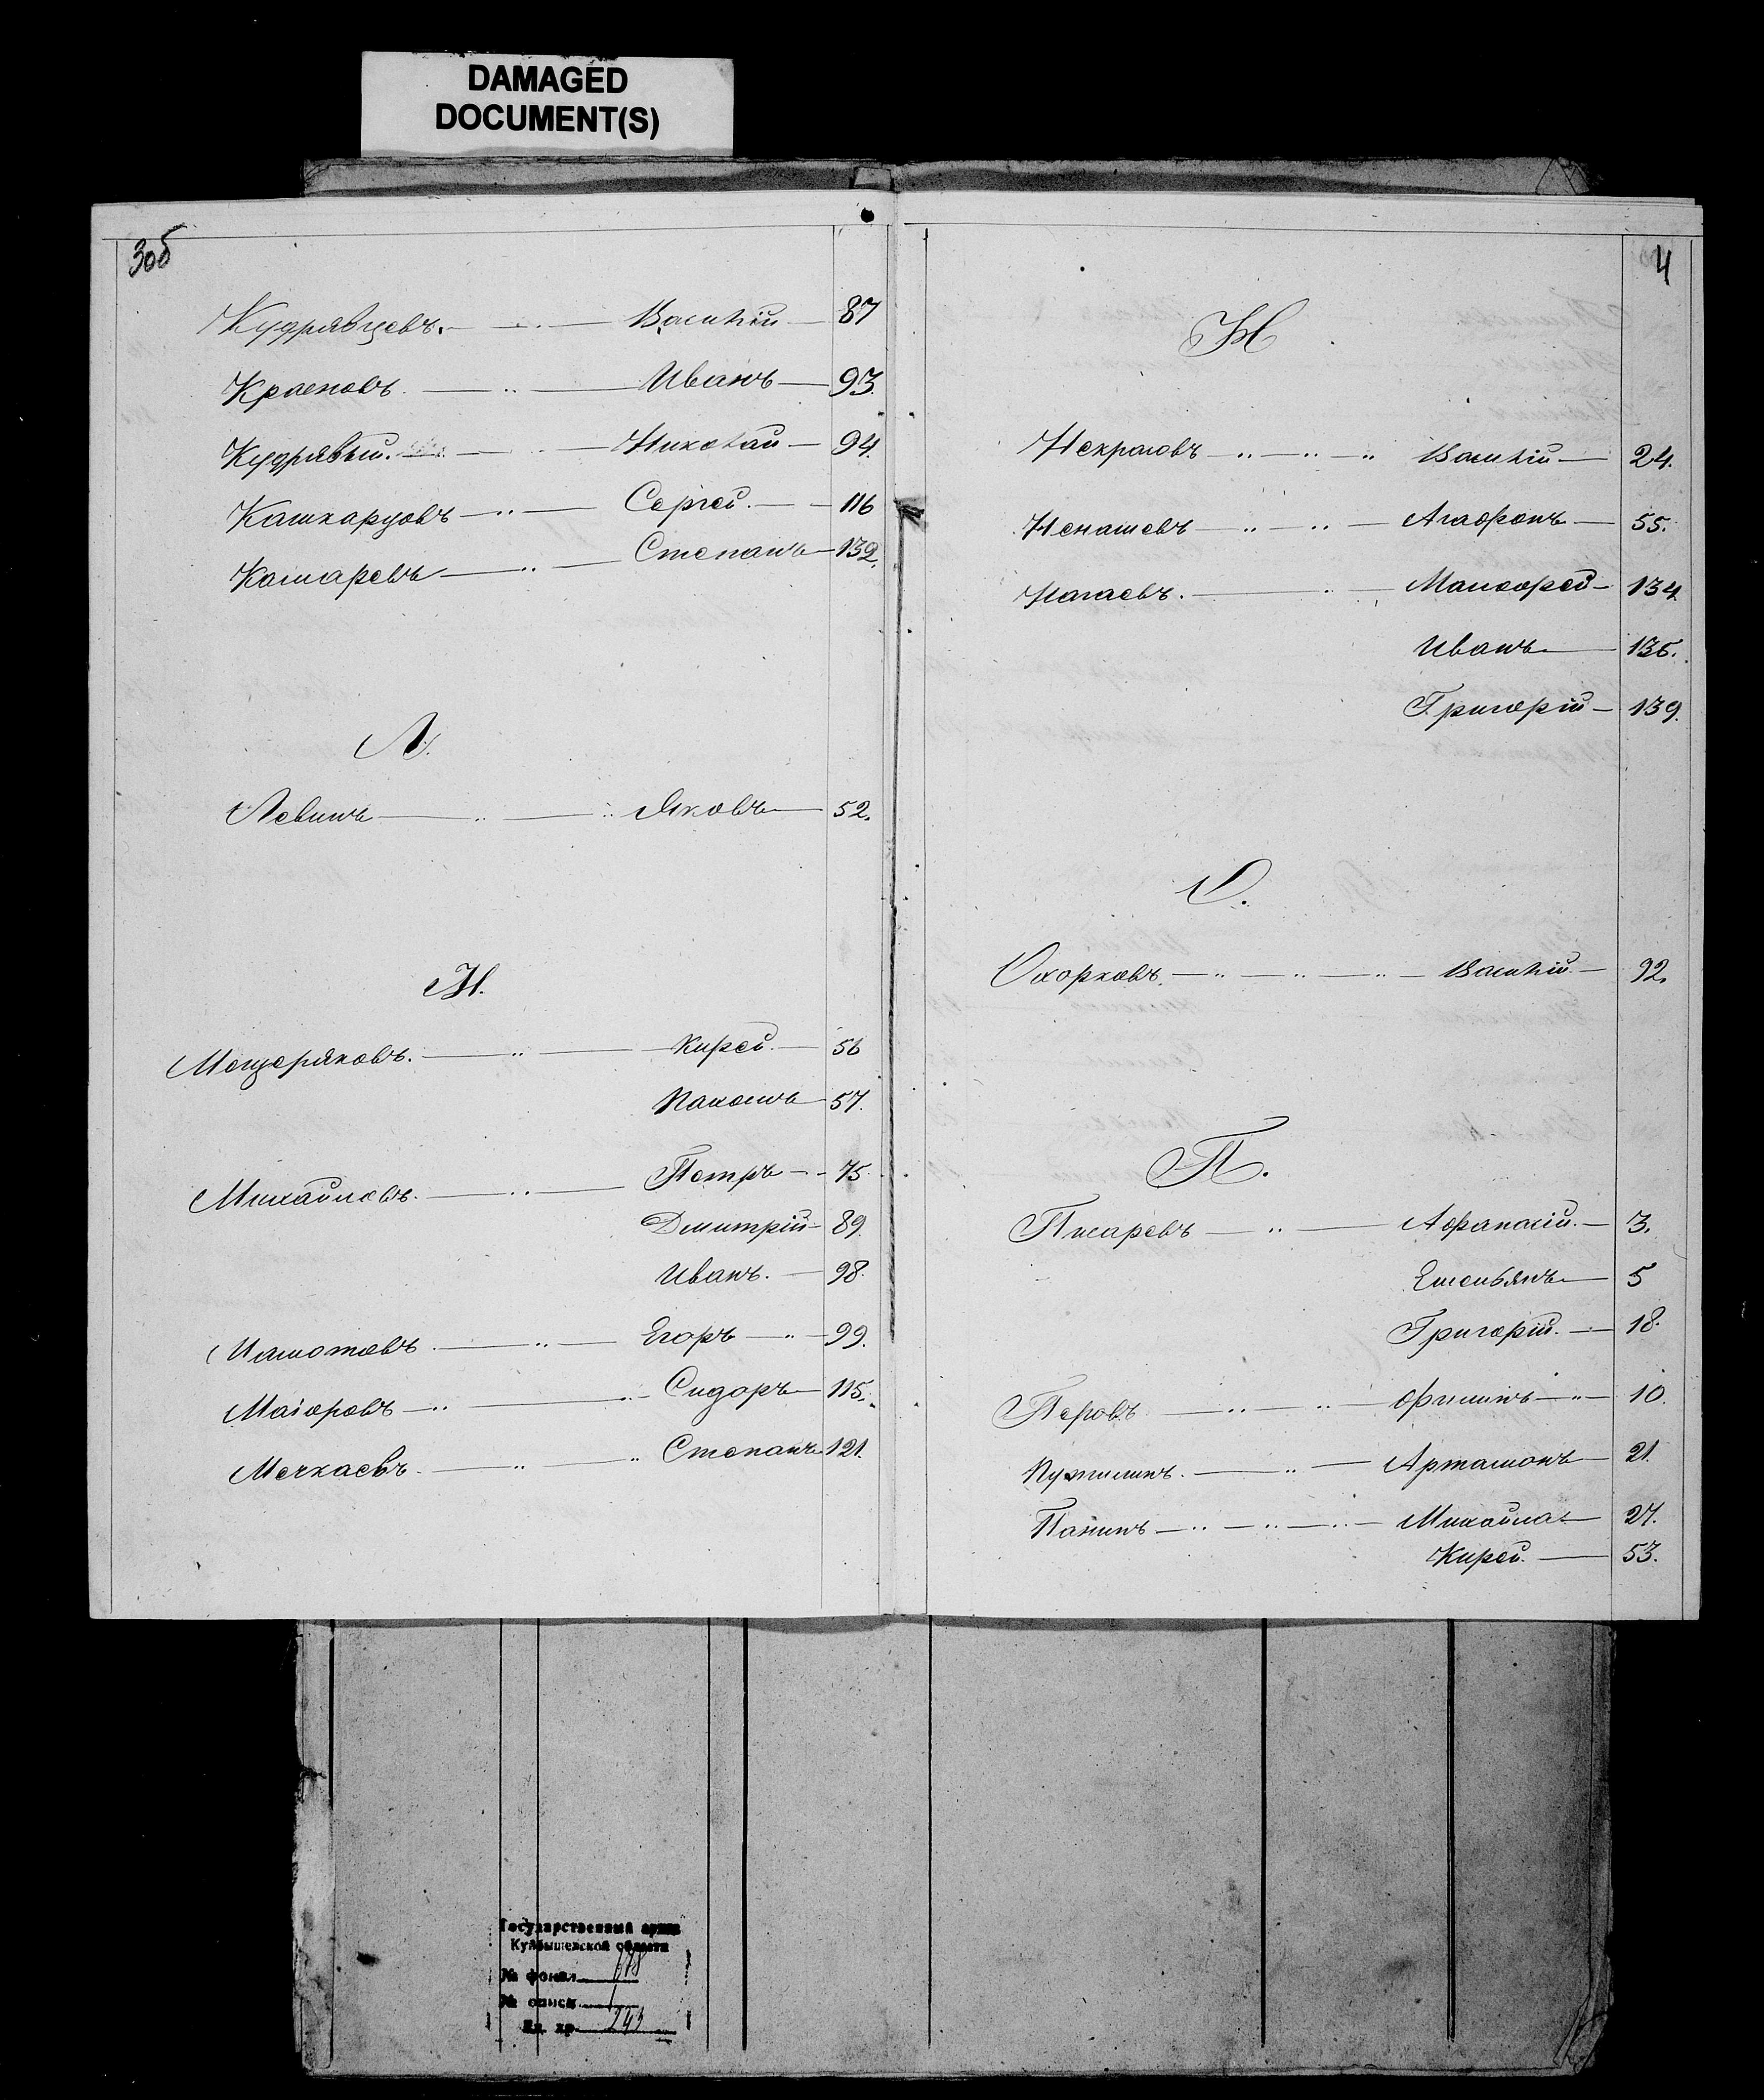 DAMAGED
DOCUMENT(S)
3об
Кудрявцевъ. Василій 87
Красновъ Иванъ 93.
Кудрявый. Николай 94.
Кашкаровъ Сергей. 116
Кошаревъ Степанъ 132.
Л.
Левинъ Яковъ 52.
М.
Мещеряковъ. Кирей. 56
57.
Михайловъ. Петръ 75.
Дмитрій 89.
Иванъ. 98.
Егоръ 99.
Маіоровъ Сидоръ 115.
Мечкаевъ. Степанъ 121.
4
Н
Некрасовъ Василій 24.
Ненашевъ Агафонъ 55.
Нагаевъ. 134
Иванъ 135.
Григорій 139.
О.
Охорковъ. Василій 92.
П.
Писаревъ Афанасій. 3.
Емельянъ 5
Григорій. 18.
Перовъ Филипъ 10.
Пужилинъ. Артамонъ 21.
Панинъ Михайла 27.
Кирей. 53.
Государственный архив
Куйбышевской области
№ фонда 678
№ описи 1
Ед. хр. 243